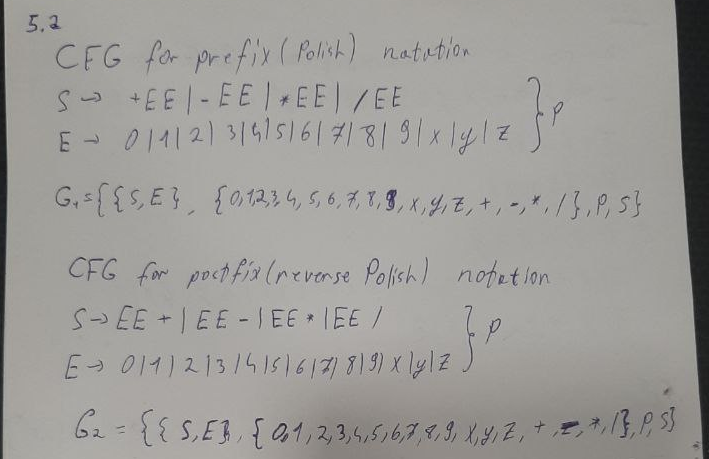 5.2
CFG for prefix (Polish) notation
S → +EE | -EE | *EE | /EE
E → 0|1|2|3|4|5|6|7|8|9|x|y|z } P
G₁={{S,E}, {0,1,2,3,4,5,6,7,8,9,x,y,z,+,-,*,/}, P, S}
CFG for postfix (reverse Polish) notation
S → EE + | EE - | EE * | EE /
E → 0|1|2|3|4|5|6|7|8|9|x|y|z } P
G₂ = {{S,E}, {0,1,2,3,4,5,6,7,8,9,x,y,z,+,-,*,/}, P, S}